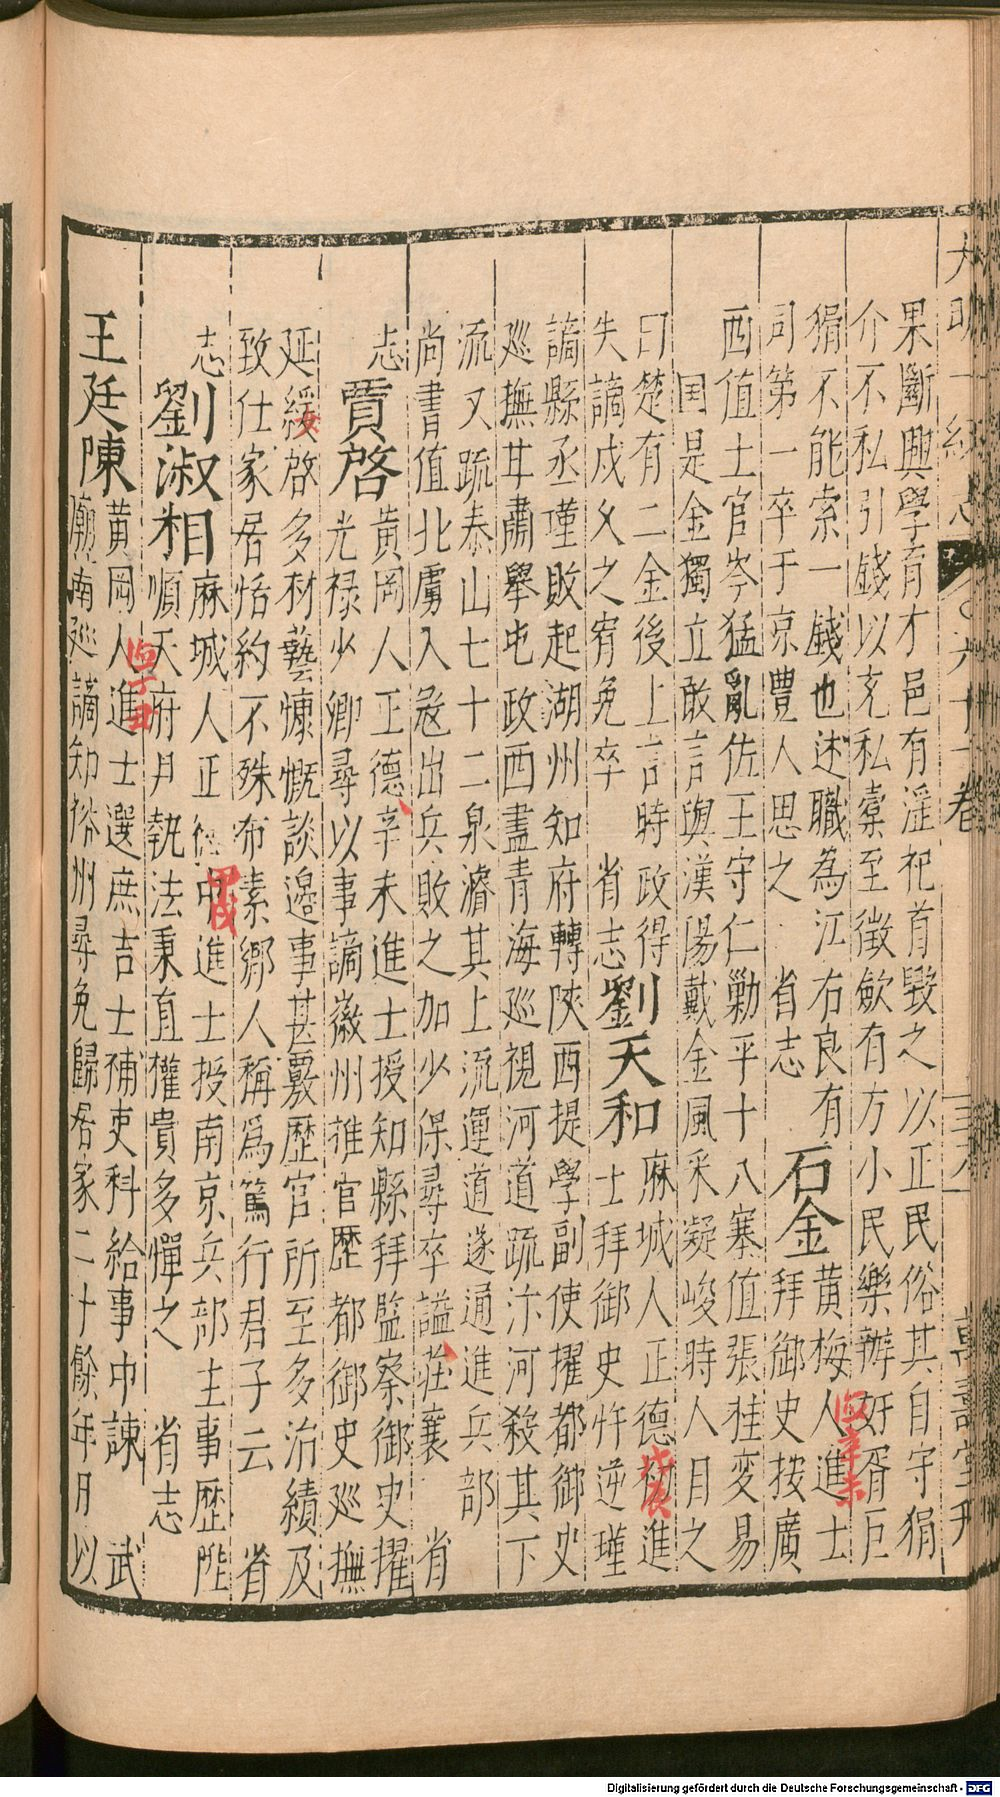 大明一統志　六十一卷　三八　萬壽堂刊
果斷興學育才邑有淫祀首毀之以正民俗其自守狷
介不私引錢以充私橐至徵歛有方小民樂辦奸胥巨
猾不能索一錢也述職為江右良有
司第一卒于京豊人思之　省志
石金
黄梅人進士
拜御史按廣
正辛未
西值土官岑猛亂佐王守仁勦平十八寨值張桂変易
国是金獨立敢言與漢陽戴金風采凝峻時人目之
曰楚有二金後上言時政得
失謫戍久之宥免卒　省志
劉天和
麻城人正德初進
士拜御史忤逆瑾
戊辰
謫縣丞瑾敗起湖州知府轉陝西提學副使擢都御史
巡撫甘肅舉屯政西盡青海巡視河道疏汴河殺其下
流又疏泰山七十二泉濬其上流運道遂通進兵部
尚書值北虜入寇出兵敗之加少保尋卒謚莊襄　省
志
賈啓
黄岡人正德辛未進士授知縣拜監察御史擢
光禄少卿尋以事謫徽州推官歴都御史巡撫
延綏啓多材藝慷慨談邉事甚覈歴官所至多治績及
致仕家居恬約不殊布素鄉人稱爲篤行君子云　省
志
劉淑相
麻城人正德中進士授南京兵部主事歴陞
順天府尹執法秉直權貴多憚之　省志
甲戌
王廷陳
黄岡人進士選庶吉士補吏科給事中諫　武
廟南廵謫知裕州尋免歸居家二十餘年日以
丁丑
Digitalisierung gefördert durch die Deutsche Forschungsgemeinschaft - DFG